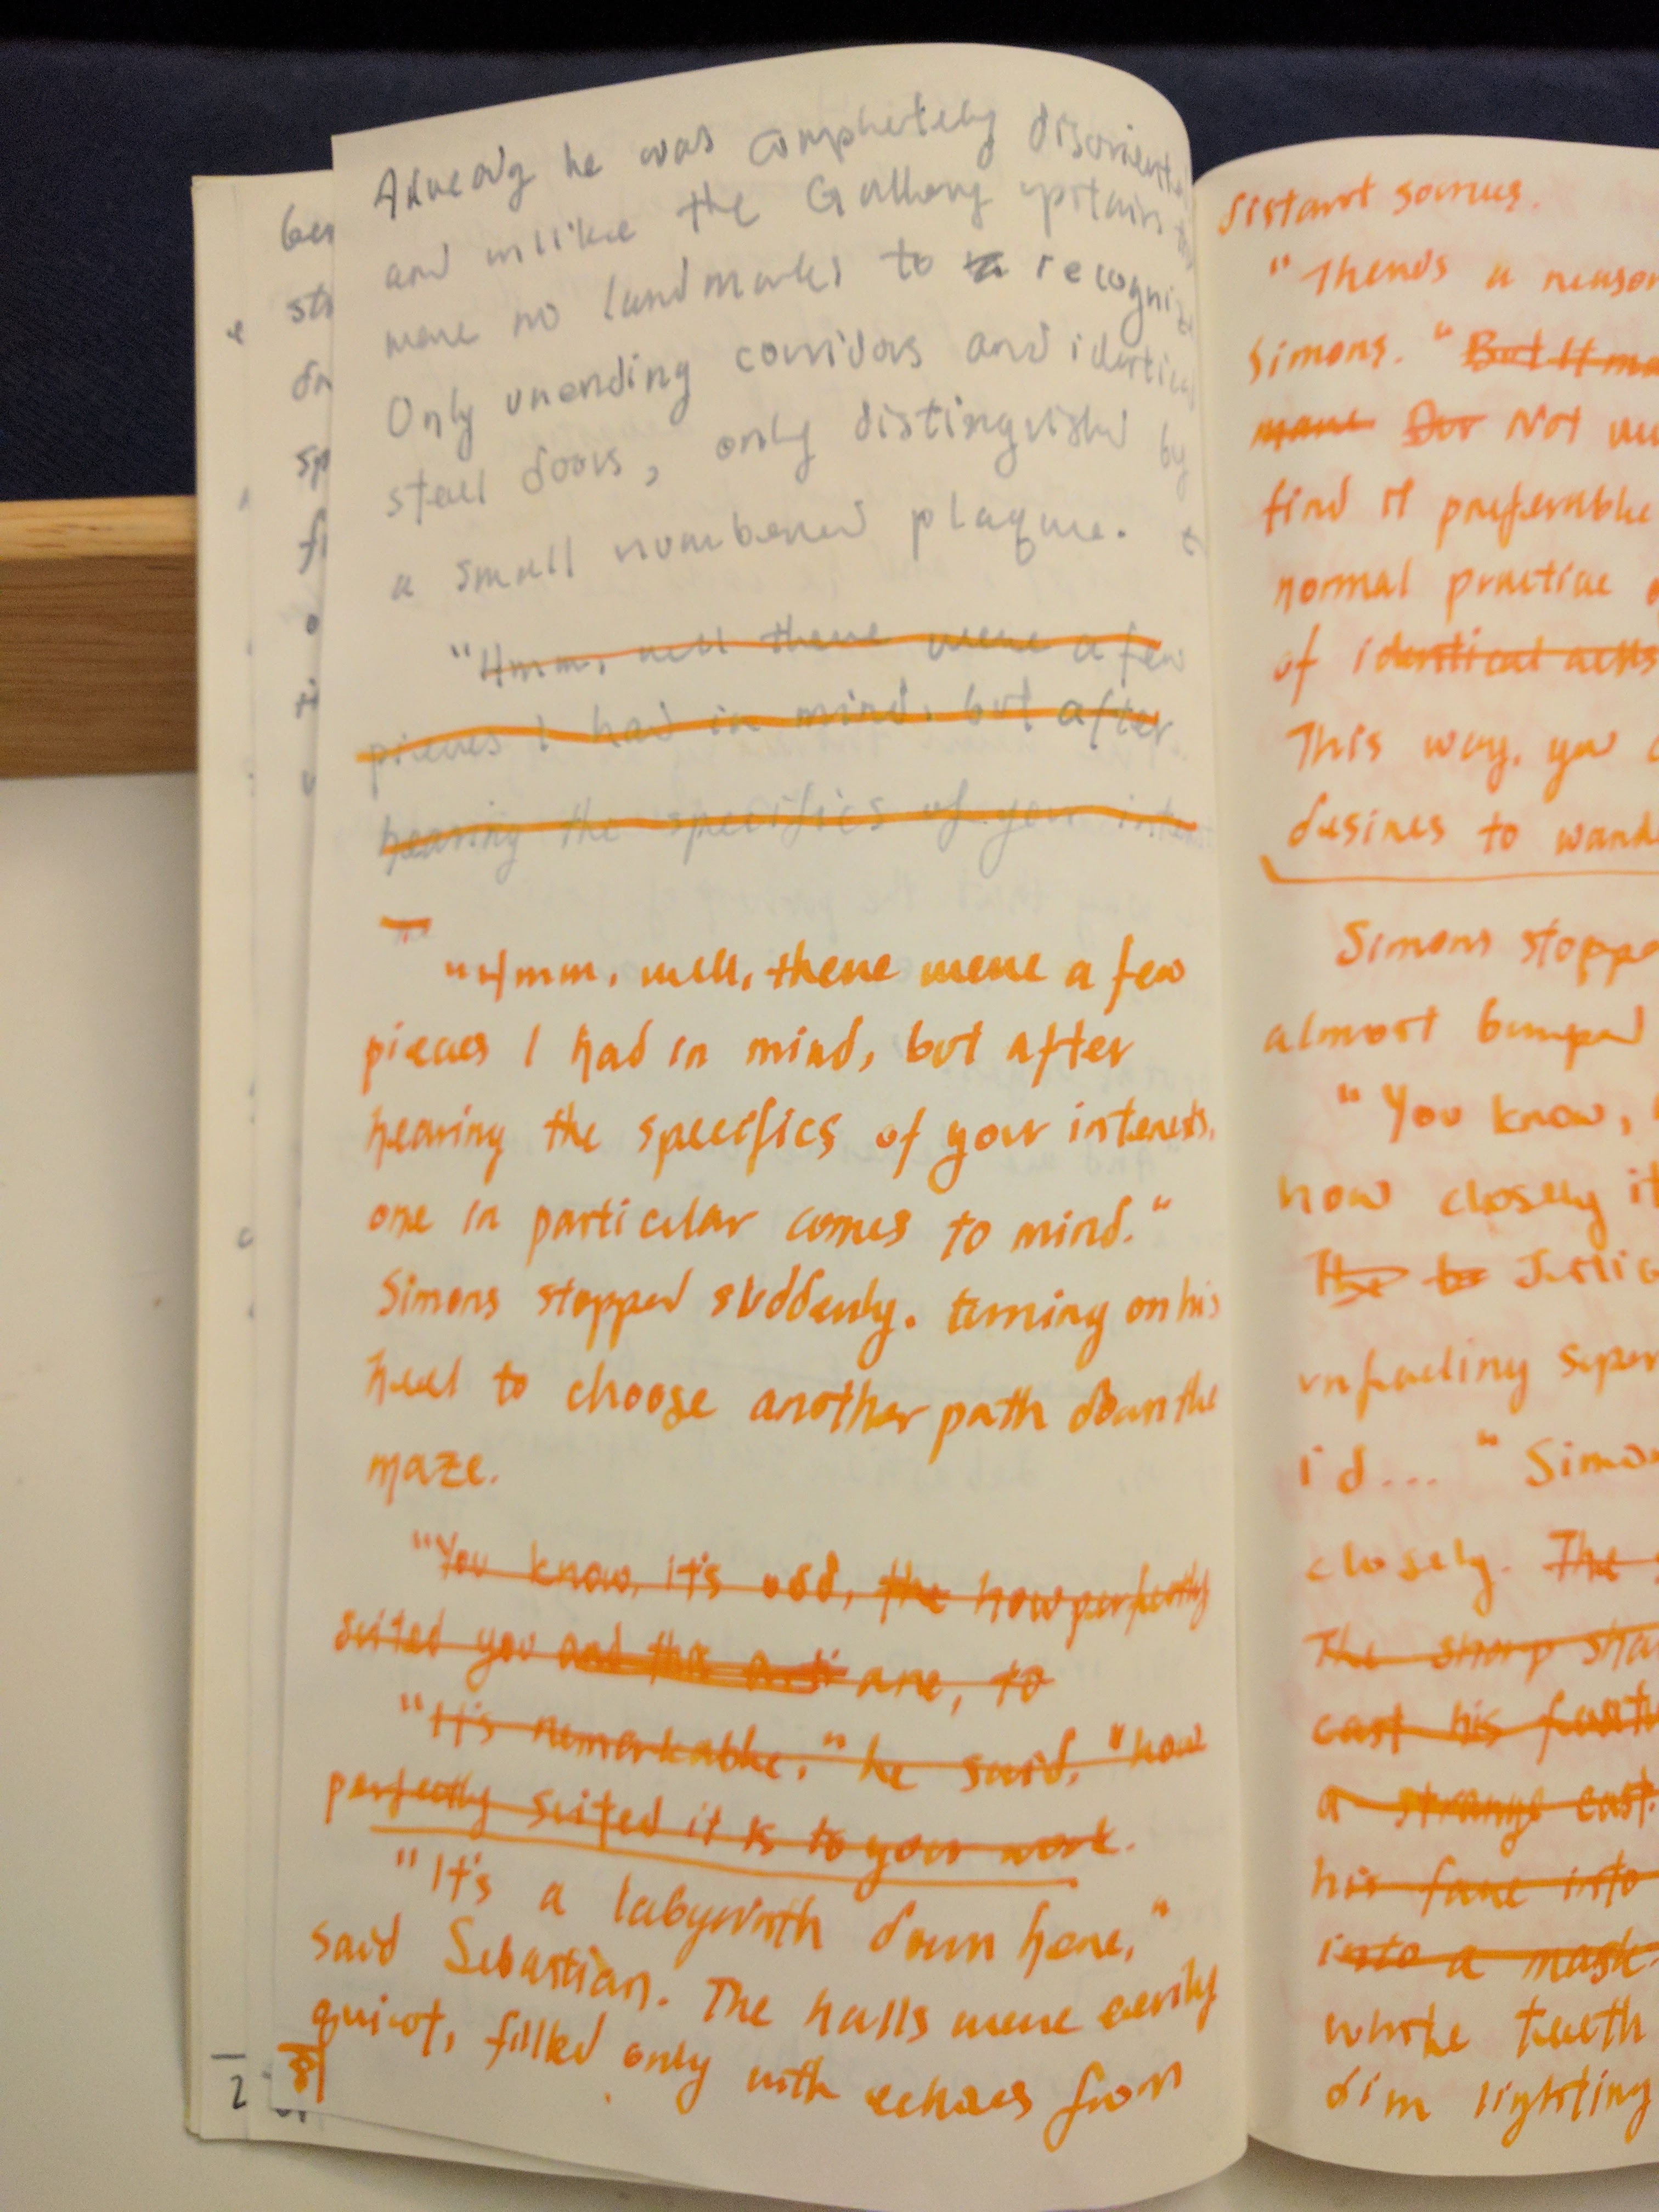 Already he was completely disoriented
and unlike the Gallery upstairs
were no landmarks to recogniz
Only unending corridors and identical
steel doors, only distinguished by
a small numbered plaque.
"Hmm, well there were a few
pieces I had in mind, but after
hearing the specifics of your inter
"Hmm, well, there were a few
pieces I had in mind, but after
hearing the specifics of your interests,
one in particular comes to mind."
Simons stopped suddenly. turning on his
heel to choose another path down the
maze.
"You know, it's odd, the how perfectly
suited you and the are, to
"It's remarkable," he said, "how
perfectly suited it is to your work.
"It's a labyrinth down here,"
said Sebastian. The halls were eerily
quiet, filled only with echoes from
2
distant sources.
"There's a reason
Simons. "But it
Not
find it preferable
normal practice
of identical cells
This way, you
desires to wand
Simons stoppe
almost bumped
"You know,
how closely it
The to
unfailing super
id..." Simo
closely. The
The sharp sha
cast his
a strange cast.
his face into
into a mask.
white teeth
dim lighting